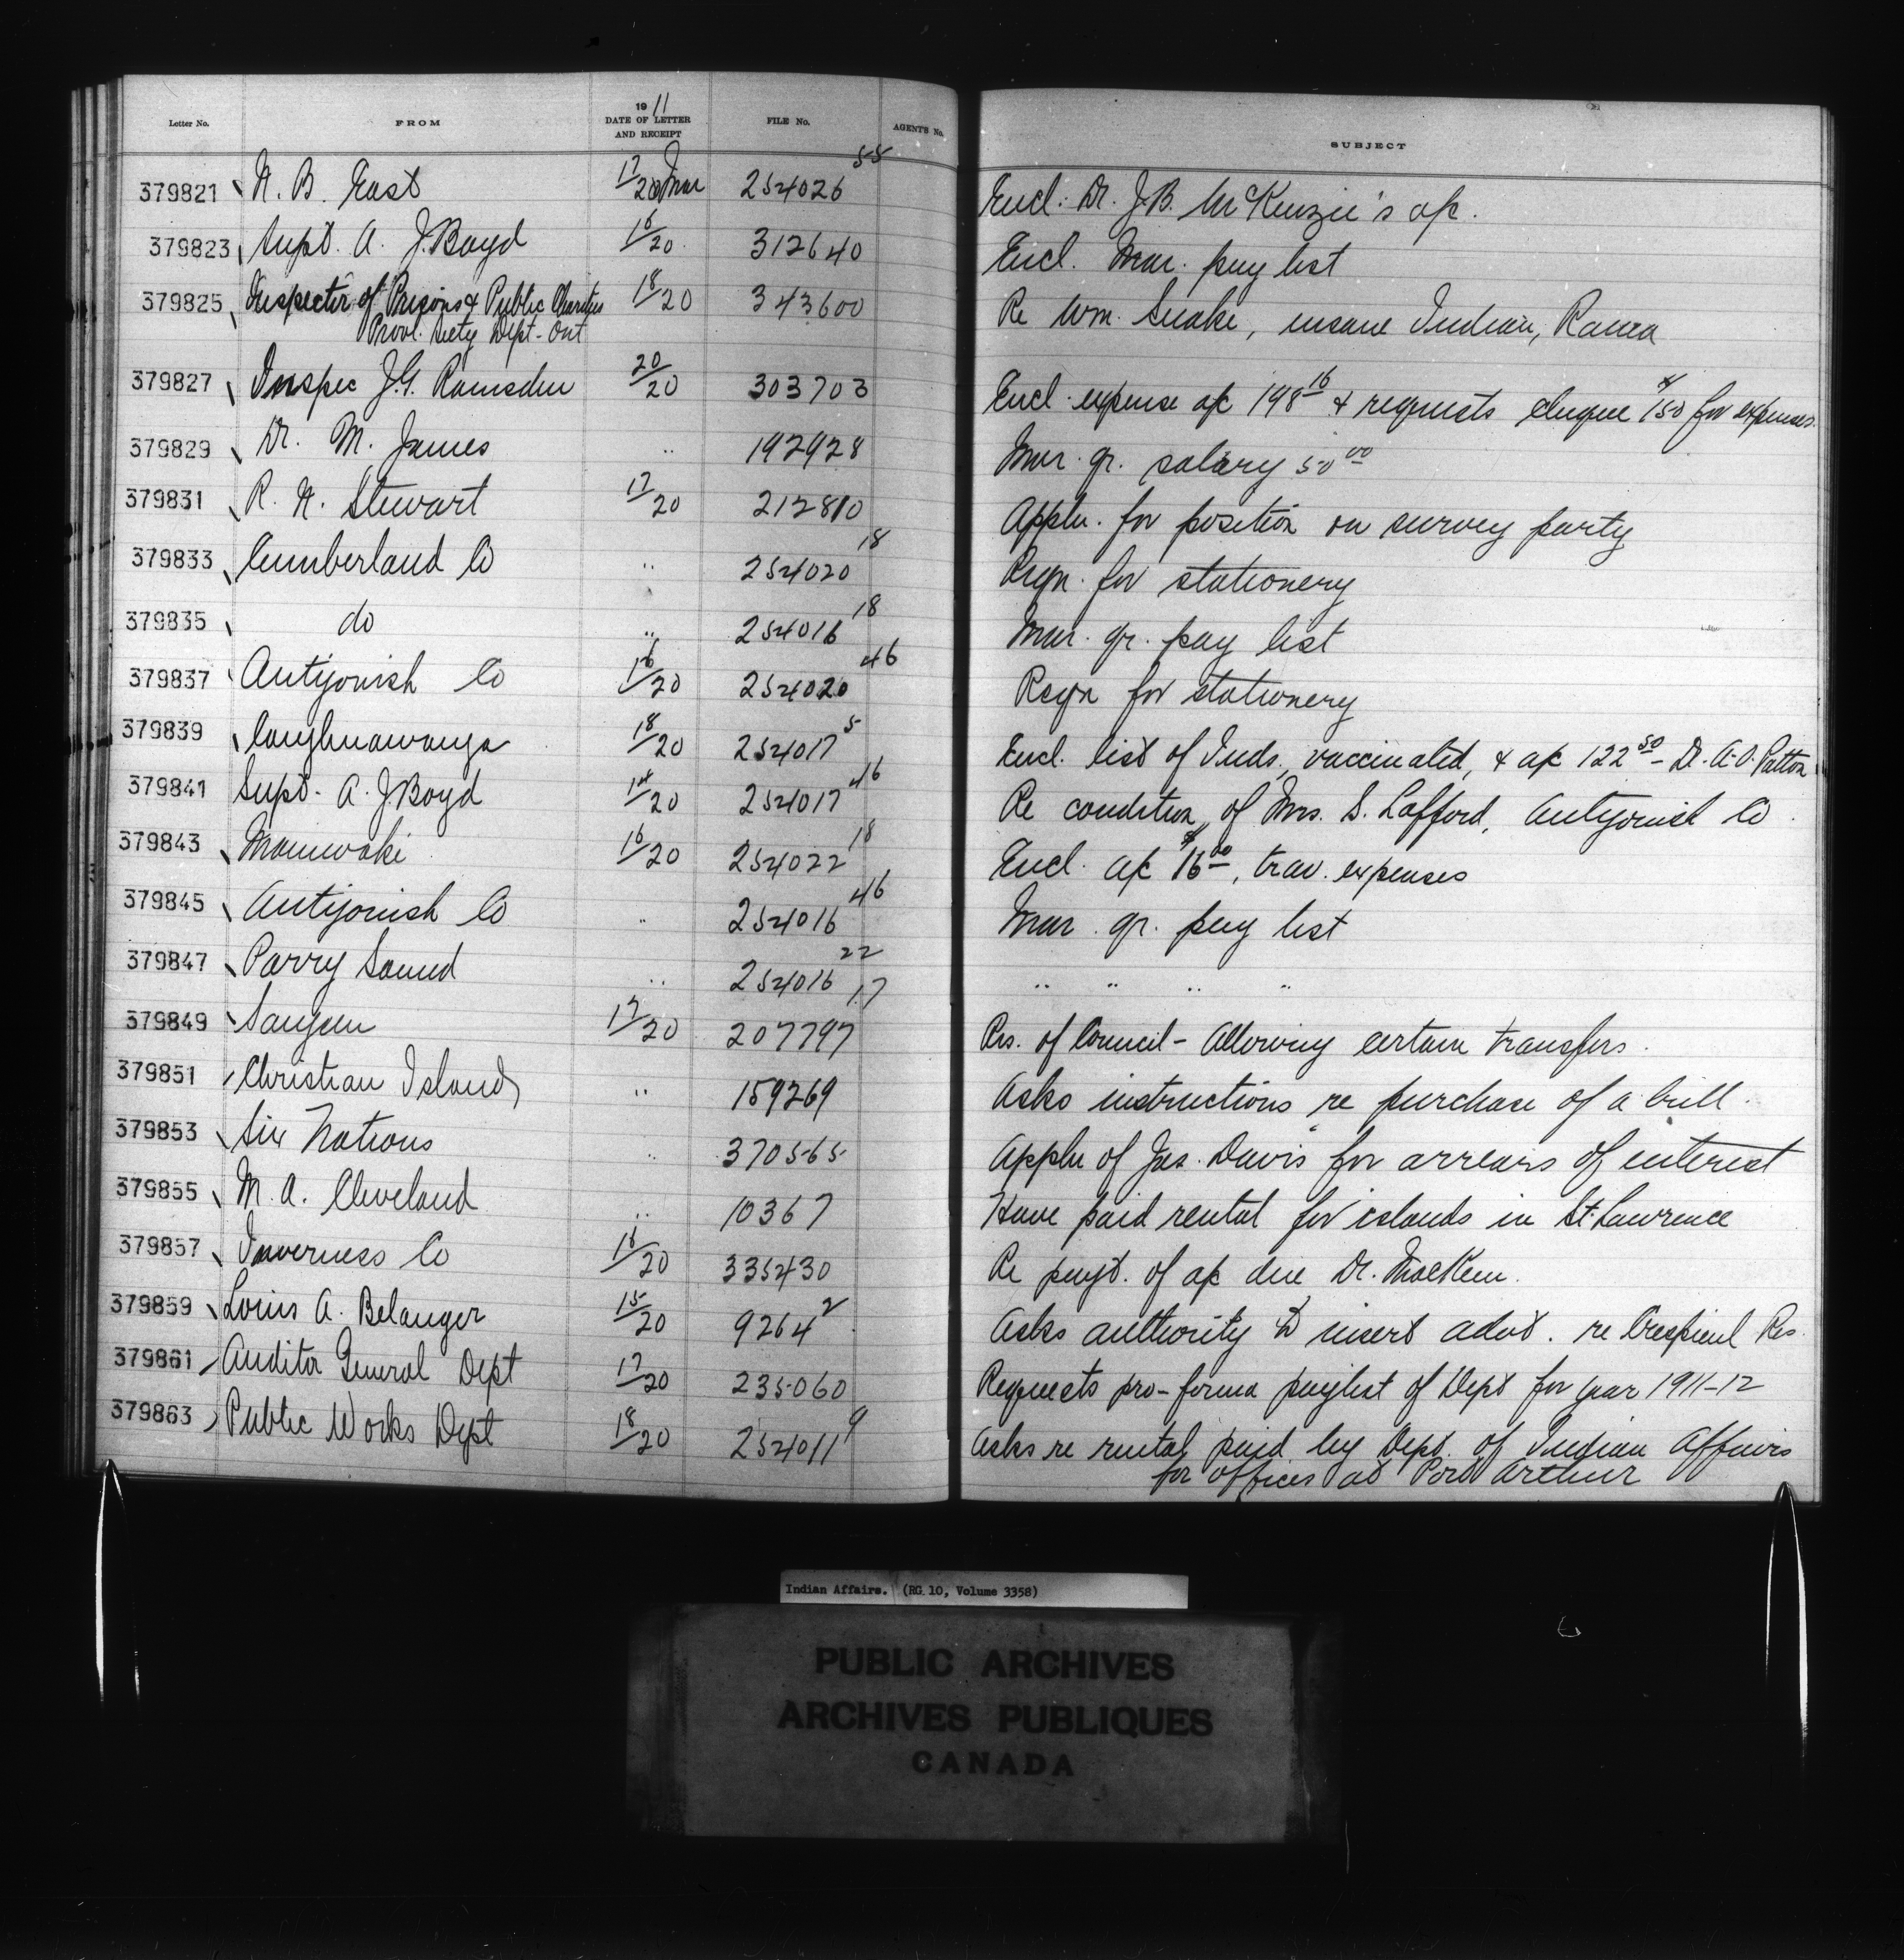 Letter No. FROM 1911 DATE OF LETTER AND RECEIPT FILE No. AGENTS No. SUBJECT
379821 N. B. East 17/20 Mar 254026 55 Encl. Dr. J.B. McKenzie's a/c.
379823 Supt. A. J. Boyd 16/20 312640 Encl. Mar. pay list
379825 Inspector of Prisons & Public Charities 18/20 343600 Re Wm. Snake, insane Indian, Rama
Provl. Secty Dept. Ont
379827 Inspec J.G. Ramsden 20/20 303703 Encl. expense a/c 198 16 & requests cheque $150 for expenses.
379829 Dr. M. James " 192928 Mar. qr. salary 50 00
379831 R. N. Stewart 17/20 212810 Appln. for position on survey party
379833 Cumberland Co " 254020 18 Reqn. for stationery
379835 do " 254016 18 Mar. qr. pay list
379837 Antigonish Co 16/20 254020 46 Reqn for stationery
379839 Caughnawauga 18/20 254017 5 Encl. list of Inds. vaccinated, & a/c 122 50 - Dr. A.O. Patton
379841 Supt. A. J. Boyd 14/20 254017 46 Re condition of Mrs. S. Lafford, Antigonish Co.
379843 Maniwaki 16/20 254022 18 Encl. a/c $16 00, trav. expenses
379845 Antigonish Co " 254016 46 Mar. qr. pay list
379847 Parry Sound " 254016 22 " " " "
379849 Saugeen 17/20 207797 17 Res. of Council - Allowing certain transfers.
379851 Christian Island " 159269 Asks instructions re purchase of a bull.
379853 Six Nations " 370565 Appln of Jas. Davis for arrears of interest
379855 M. A. Cleveland " 10367 Have paid rental for islands in St. Lawrence
379857 Inverness Co 16/20 335430 Re payt. of a/c due Dr. MacKen.
379859 Louis A. Belanger 15/20 9264 2 Asks authority to insert advt. re Crespieul Res.
379861 Auditor General Dept 17/20 235060 Requests pro-forma paylist of Dept for year 1911-12
379863 Public Works Dept 18/20 254011 9 Asks re rental paid by Dept. of Indian Affairs
for offices at Port Arthur
Indian Affairs. (RG 10, Volume 3358)
PUBLIC ARCHIVES
ARCHIVES PUBLIQUES
CANADA